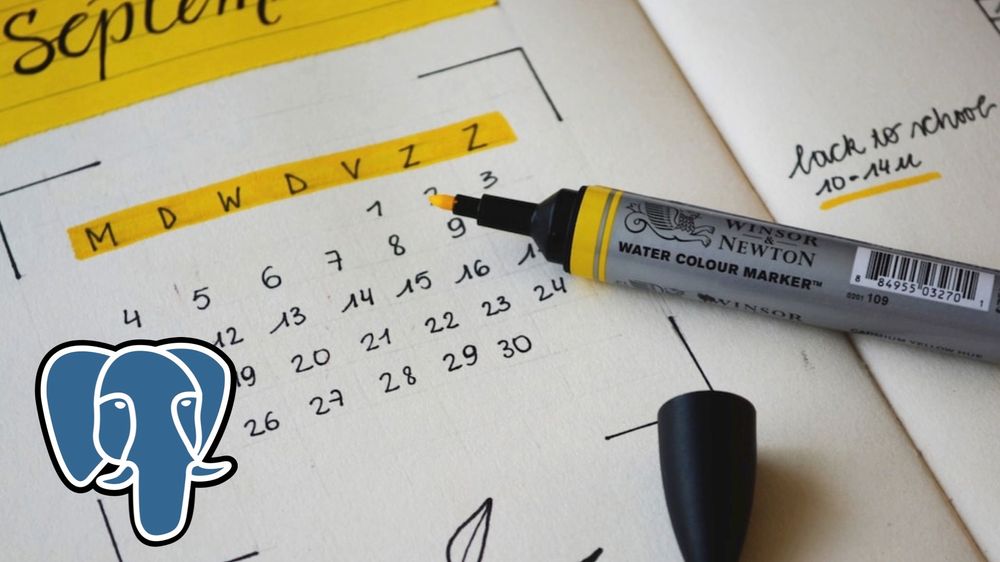 M D W D V Z Z
1 2 3
4 5 6 7 8 9
12 13 14 15 16
20 21 22 23 24
26 27 28 29 30
back to school
10-14u
WINSOR
&
NEWTON
WATER COLOUR MARKER™
8 84955 03270 1
0201 109
WINSOR